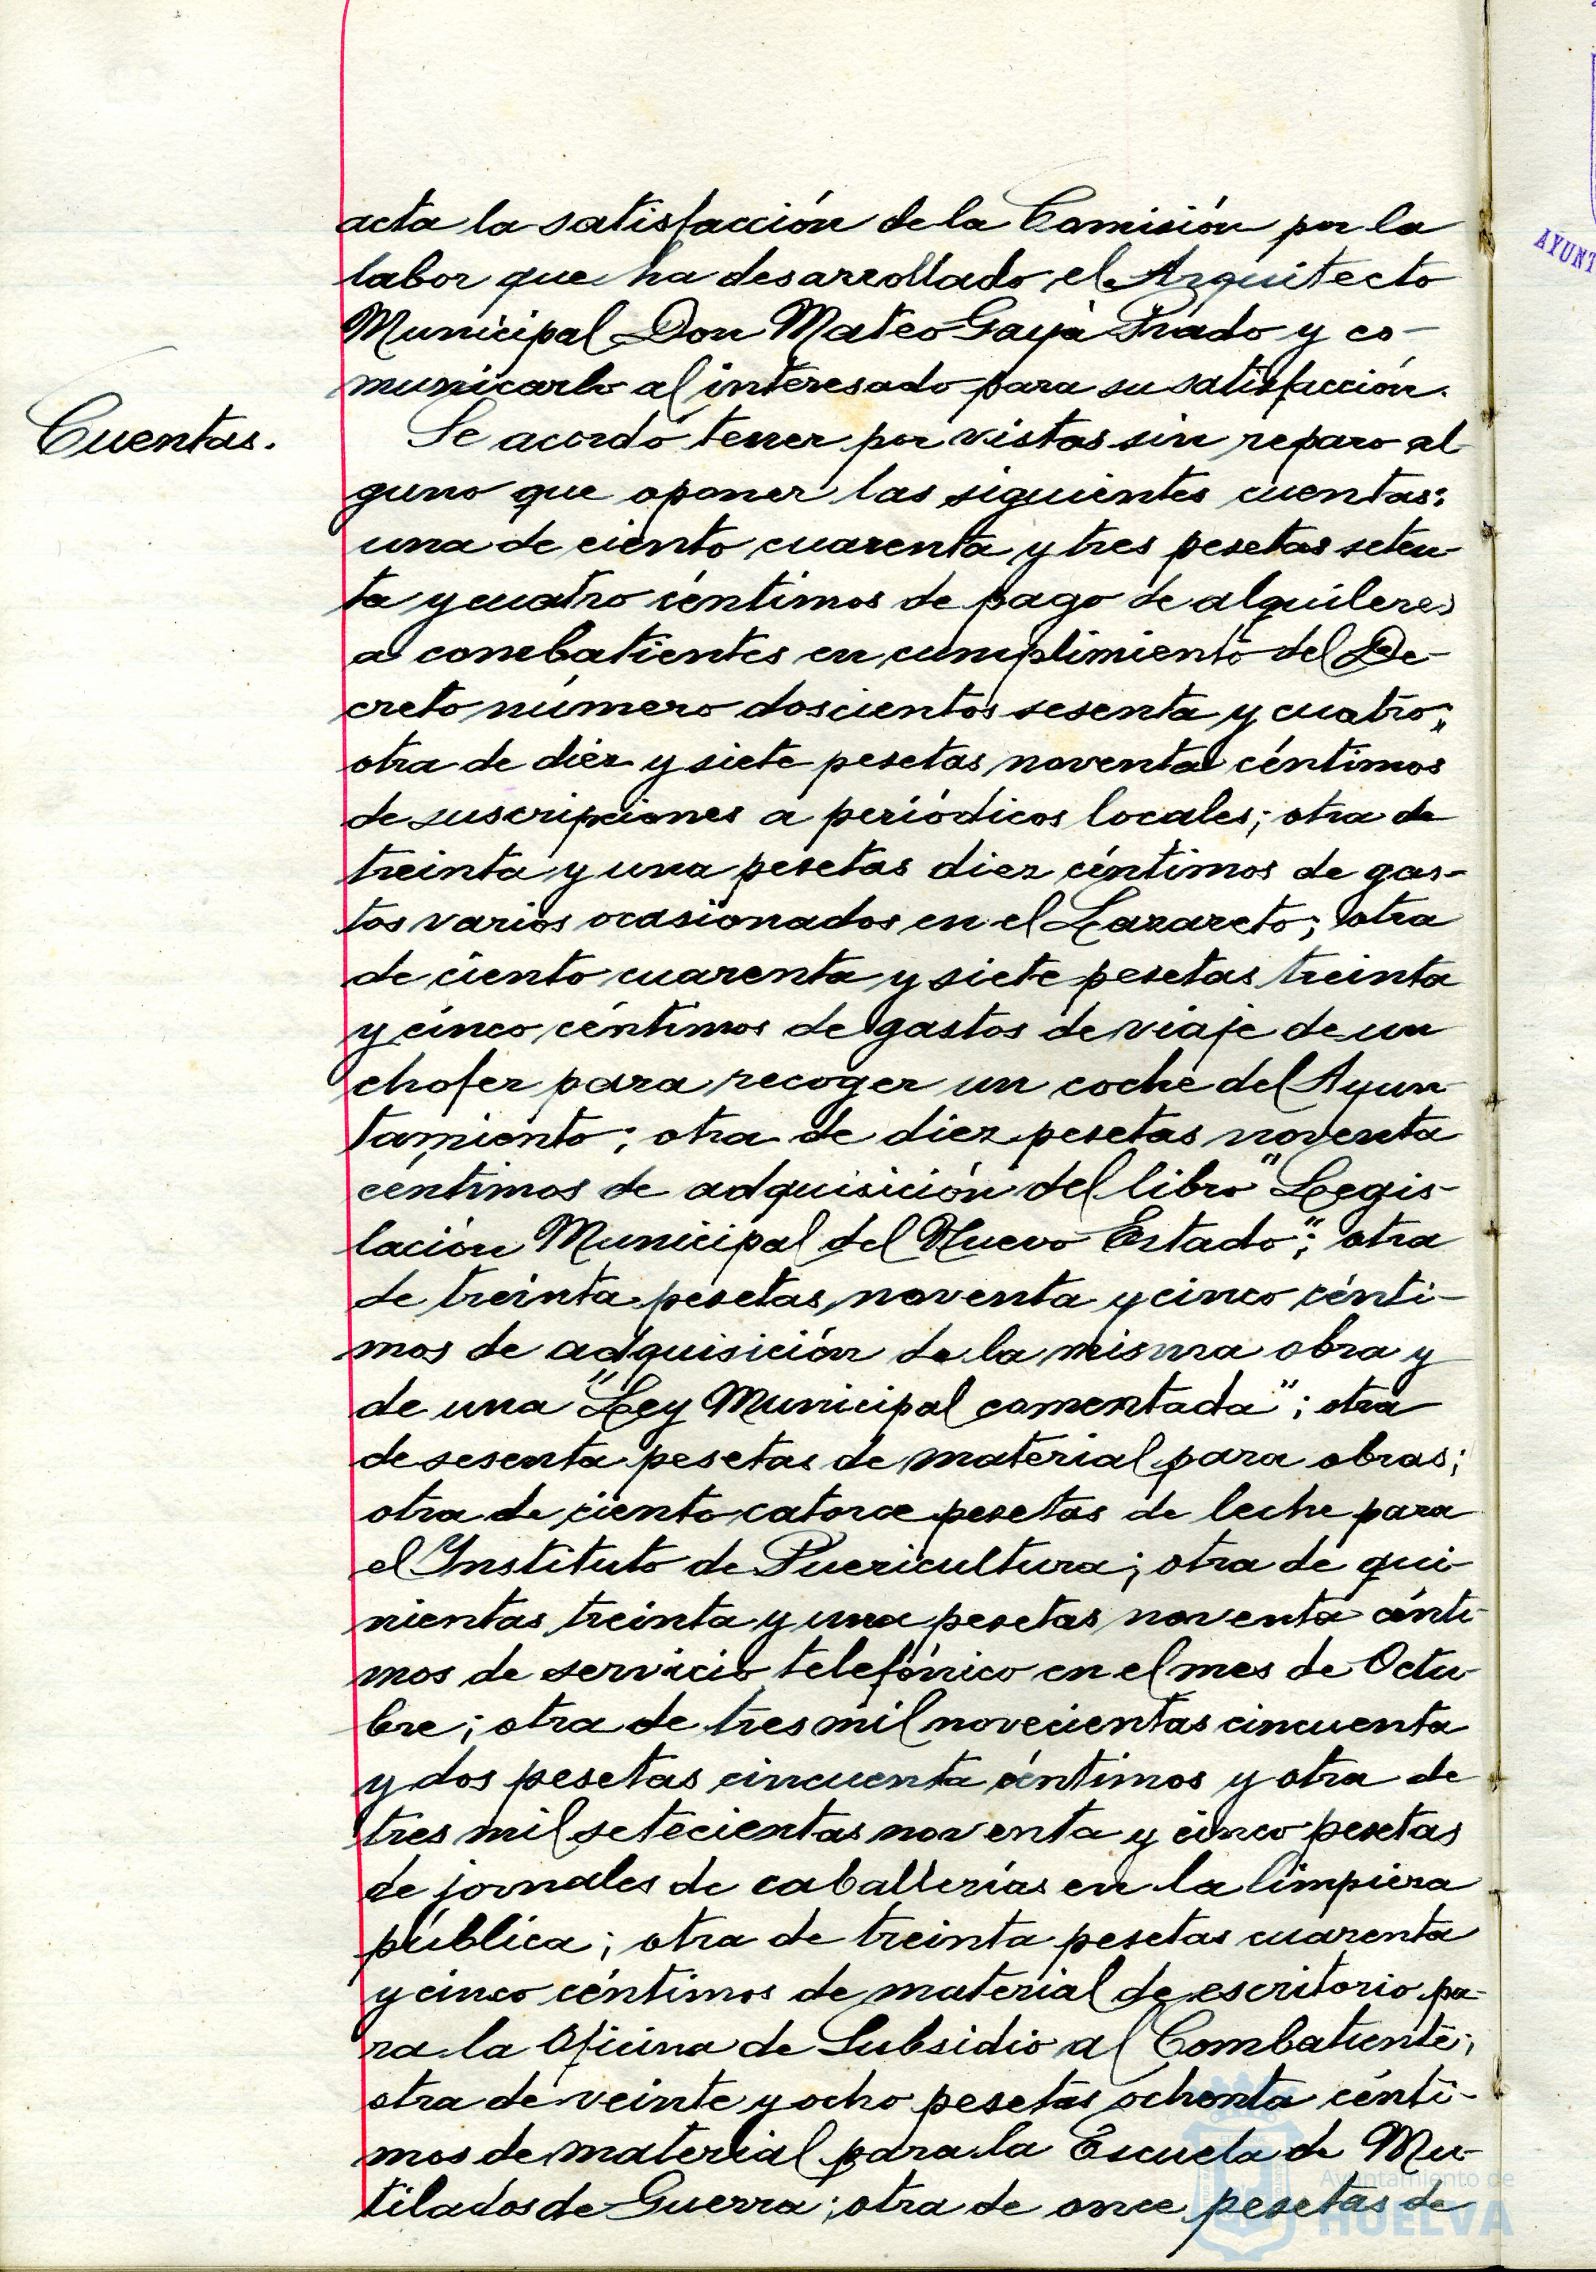 acta la satisfacción de la Comisión por la
labor que ha desarrollado el Arquitecto
Municipal Don Mateo Gayá Prado y co-
municarlo al interesado para su satisfacción.
Cuentas.
Se acordó tener por vistas sin reparo al
guno que oponer las siguientes cuentas:
una de ciento cuarenta y tres pesetas seten-
ta y cuatro céntimos de pago de alquileres
a combatientes en cumplimiento del De-
creto número doscientos sesenta y cuatro;
otra de diez y siete pesetas noventa céntimos
de suscripciones a periódicos locales; otra de
treinta y una pesetas diez céntimos de gas-
tos varios ocasionados en el Lazareto; otra
de ciento cuarenta y siete pesetas treinta
y cinco céntimos de gastos de viaje de un
chofer para recoger un coche del Ayun-
tamiento; otra de diez pesetas noventa
céntimos de adquisición del libro "Legis-
lación Municipal del Nuevo Estado"; otra
de treinta pesetas noventa y cinco cénti-
mos de adquisición de la misma obra y
de una "Ley Municipal comentada"; otra
de sesenta pesetas de material para obras;
otra de ciento catorce pesetas de leche para
el Instituto de Puericultura; otra de qui-
nientas treinta y una pesetas noventa cénti-
mos de servicio telefónico en el mes de Octu-
bre; otra de tres mil novecientas cincuenta
y dos pesetas cincuenta céntimos y otra de
tres mil setecientas noventa y cinco pesetas
de jornales de caballerías en la limpieza
pública; otra de treinta pesetas cuarenta
y cinco céntimos de material de escritorio pa-
ra la Oficina de Subsidio al Combatiente;
otra de veinte y ocho pesetas ochenta cénti-
mos de material para la Escuela de Mu-
tilados de Guerra; otra de once pesetas de
AYUNT
Ayuntamiento de
HUELVA